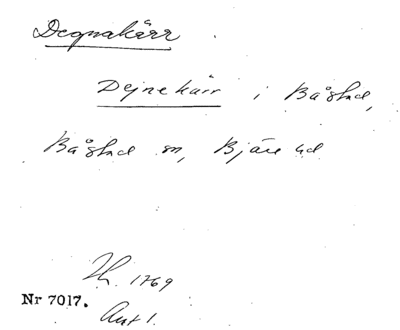 Degnakärr
Dejnekärr i Båstad,
Båstad sn, Bjäre hd
1769
Nr 7017.